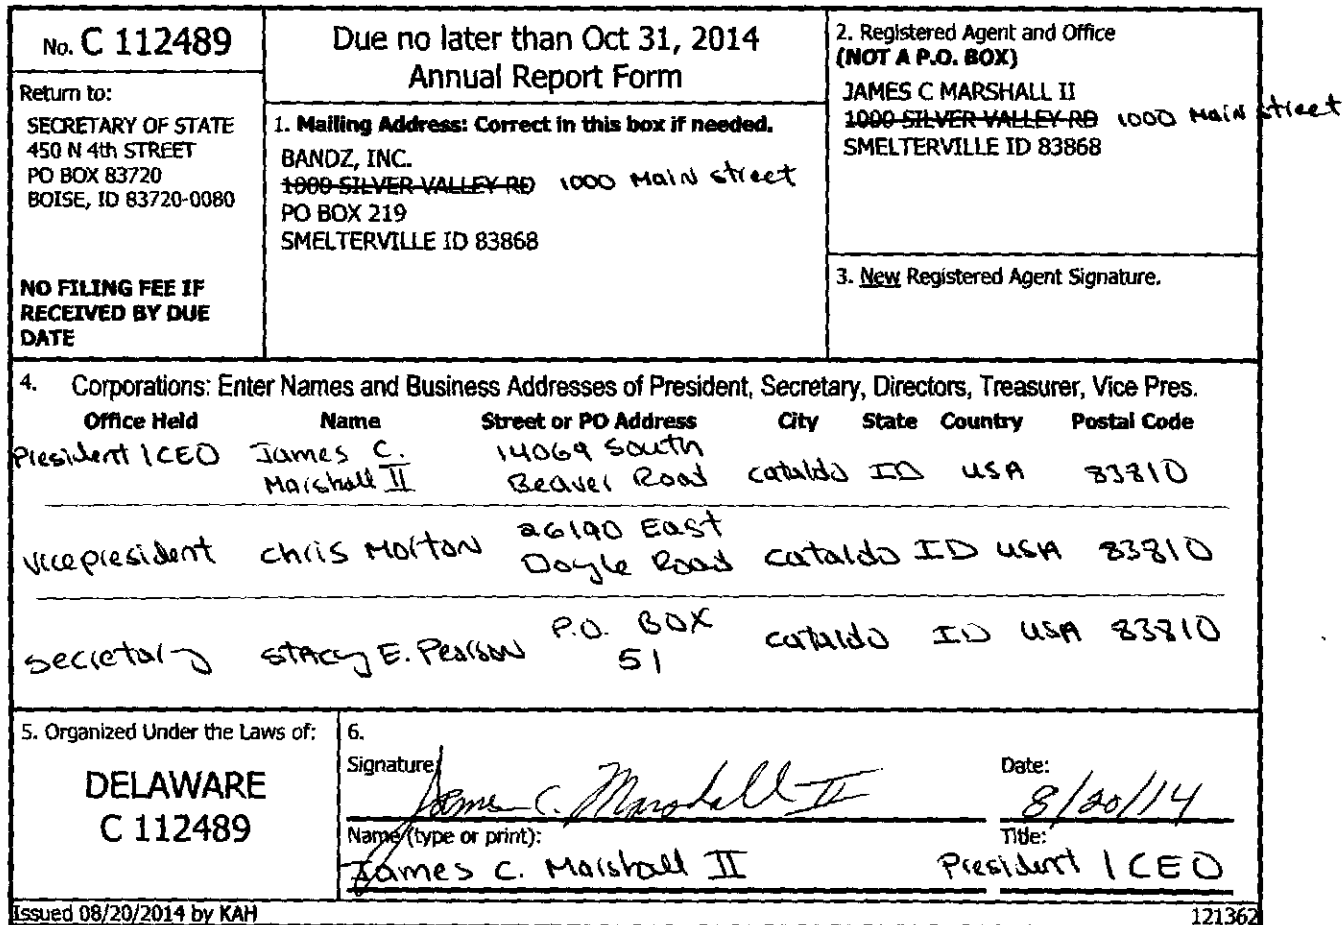 No. C 112489
Return to:
SECRETARY OF STATE
450 N 4th STREET
PO BOX 83720
BOISE, ID 83720-0080
NO FILING FEE IF
RECEIVED BY DUE
DATE
Due no later than Oct 31, 2014
Annual Report Form
1. Mailing Address: Correct in this box if needed.
BANDZ, INC.
1000 SILVER VALLEY RD 1000 Main street
PO BOX 219
SMELTERVILLE ID 83868
2. Registered Agent and Office
(NOT A P.O. BOX)
JAMES C MARSHALL II
1000 SILVER VALLEY RD 1000 Main street
SMELTERVILLE ID 83868
3. New Registered Agent Signature.
4. Corporations: Enter Names and Business Addresses of President, Secretary, Directors, Treasurer, Vice Pres.
Office Held Name Street or PO Address City State Country Postal Code
President / CEO James C. Marshall II 14069 South Beaver Road cataldo ID USA 83810
vice president chris Morton 26190 East Doyle Road cataldo ID USA 83810
secretary stacy E. Pearson P.O. BOX 51 cataldo ID USA 83810
5. Organized Under the Laws of:
DELAWARE
C 112489
6.
Signature: James C. Marshall II
Date: 8/20/14
Name (type or print):
James C. Marshall II
Title:
President / CEO
Issued 08/20/2014 by KAH
121362